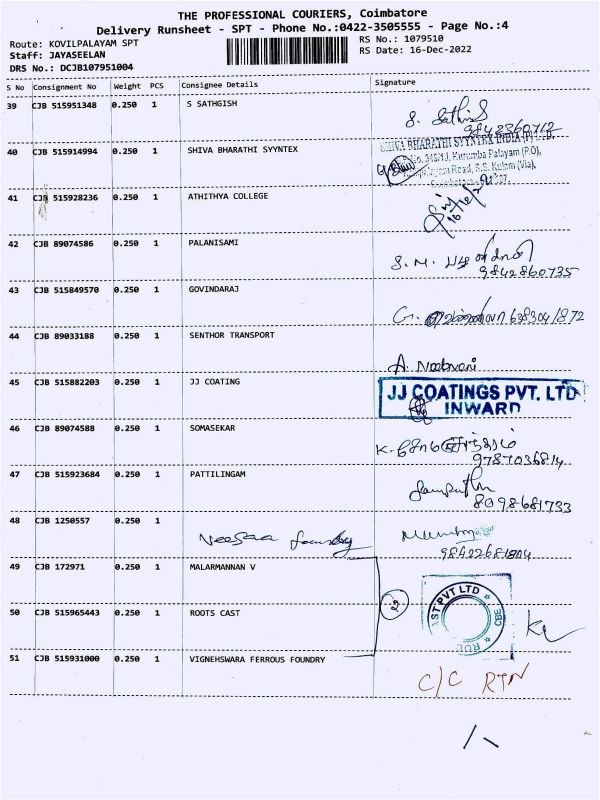 THE PROFESSIONAL COURIERS, Coimbatore
Delivery Runsheet - SPT - Phone No.:0422-3505555 - Page No.:4
Route: KOVILPALAYAM SPT
Staff: JAYASEELAN
DRS No.: DCJB107951004
RS No.: 1079510
RS Date: 16-Dec-2022
S No Consignment No Weight PCS Consignee Details Signature
39 CJB 515951348 0.250 1 S SATHGISH S. Sathis
9842860712
40 CJB 515914994 0.250 1 SHIVA BHARATHI SYYNTEX SHIVA BHARATHI SYYNTEX INDIA (P) LTD.
Kurumba Palayam (P.O),
Road, S.S. Kulam (Via),
41 CJB 515928236 0.250 1 ATHITHYA COLLEGE
42 CJB 89074586 0.250 1 PALANISAMI S. M.
9842860735
43 CJB 515849570 0.250 1 GOVINDARAJ G. 6383041872
44 CJB 89033188 0.250 1 SENTHOR TRANSPORT A.
45 CJB 515882203 0.250 1 JJ COATING JJ COATINGS PVT. LTD
INWARD
46 CJB 89074588 0.250 1 SOMASEKAR K.
9787036814
47 CJB 515923684 0.250 1 PATTILINGAM
8098681733
48 CJB 1250557 0.250 1 Neesaa foundry
49 CJB 172971 0.250 1 MALARMANNAN V
50 CJB 515965443 0.250 1 ROOTS CAST ST PVT LTD CBE
51 CJB 515931000 0.250 1 VIGNEHSWARA FERROUS FOUNDRY C/C RTN